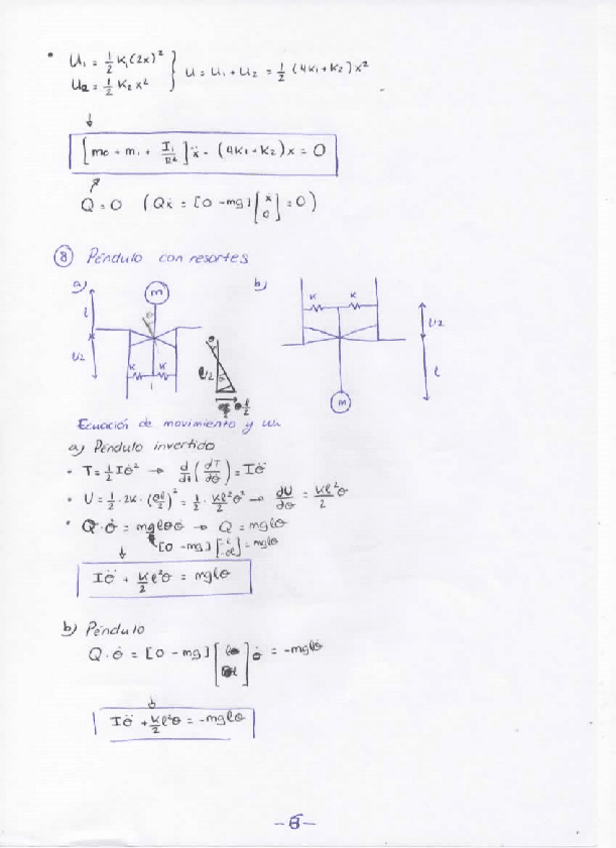 • U₁ = 1/2 K₁(2x)² } U = U₁ + U₂ = 1/2 (4K₁+K₂)x²
U₂ = 1/2 K₂x²
↓
[m₀ + m₁ + I₁/R²]ẍ - (4K₁+K₂)x = 0
Q = 0 (Qẋ = [0 -mg][ẋ 0] = 0)
⑧ Péndulo con resortes
a) b)
m
l
θ
l/2
K K
l/2
θ
θ l/2
K K
l/2
l
m
Ecuación de movimiento y ωn
a) Péndulo invertido
• T = 1/2 Iθ̇² → d/dt (dT/dθ̇) = Iθ̈
• U = 1/2 · 2K · (θl/2)² = 1/2 · Kl²/2 θ² → dU/dθ = Kl²/2 θ
• Q·θ̇ = mglθθ̇ → Q = mglθ
[0 -mg]
= mglθ
↓
Iθ̈ + K/2 l²θ = mglθ
b) Péndulo
Q·θ̇ = [0 -mg] θ̇ = -mglθ̇
↓
Iθ̈ + K/2 l²θ = -mglθ
-8-